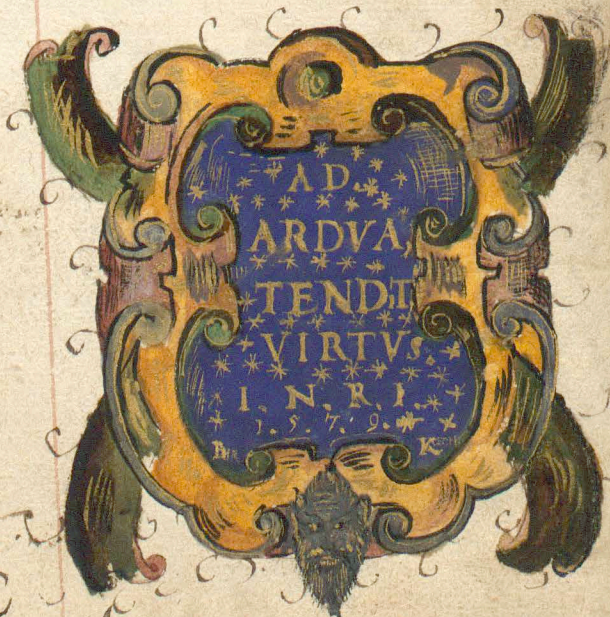 AD.
ARDVA,
TENDIT
VIRTVS.
I. N. R. I.
1. 5. 7. 9.